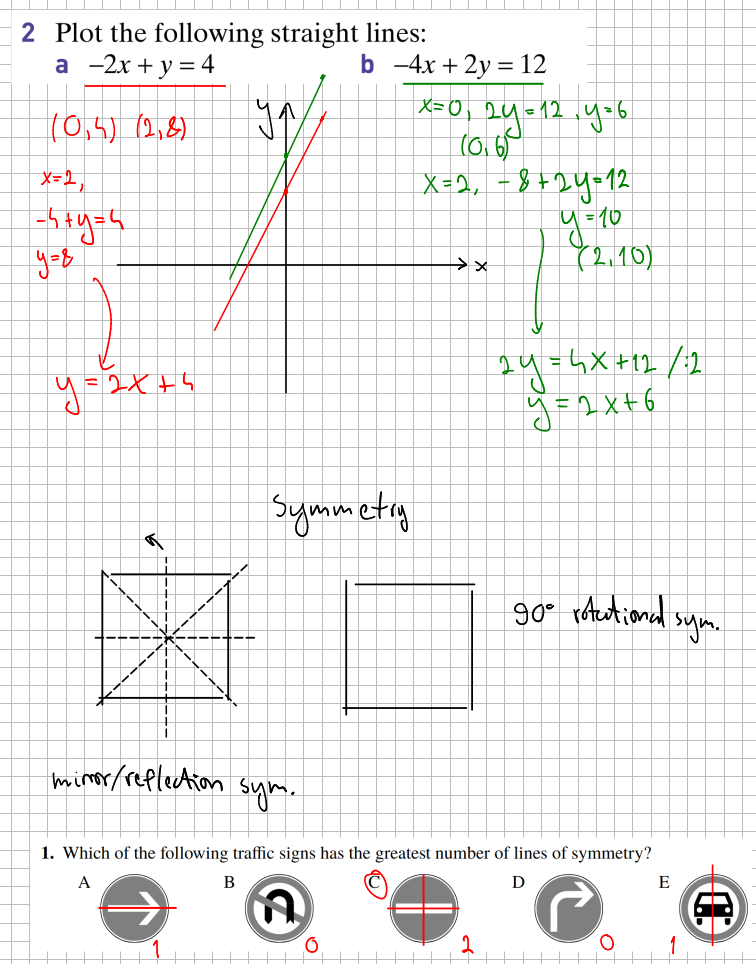 2 Plot the following straight lines:
a −2x + y = 4
b −4x + 2y = 12
(0,4) (2,8)
x=2,
-4+y=4
y=8
y=2x+4
y
x
x=0, 2y=12, y=6
(0,6)
x=2, -8+2y=12
y=10
(2,10)
2y=4x+12 /:2
y=2x+6
Symmetry
90° rotational sym.
mirror/reflection sym.
1. Which of the following traffic signs has the greatest number of lines of symmetry?
A B C D E
1 0 2 0 1